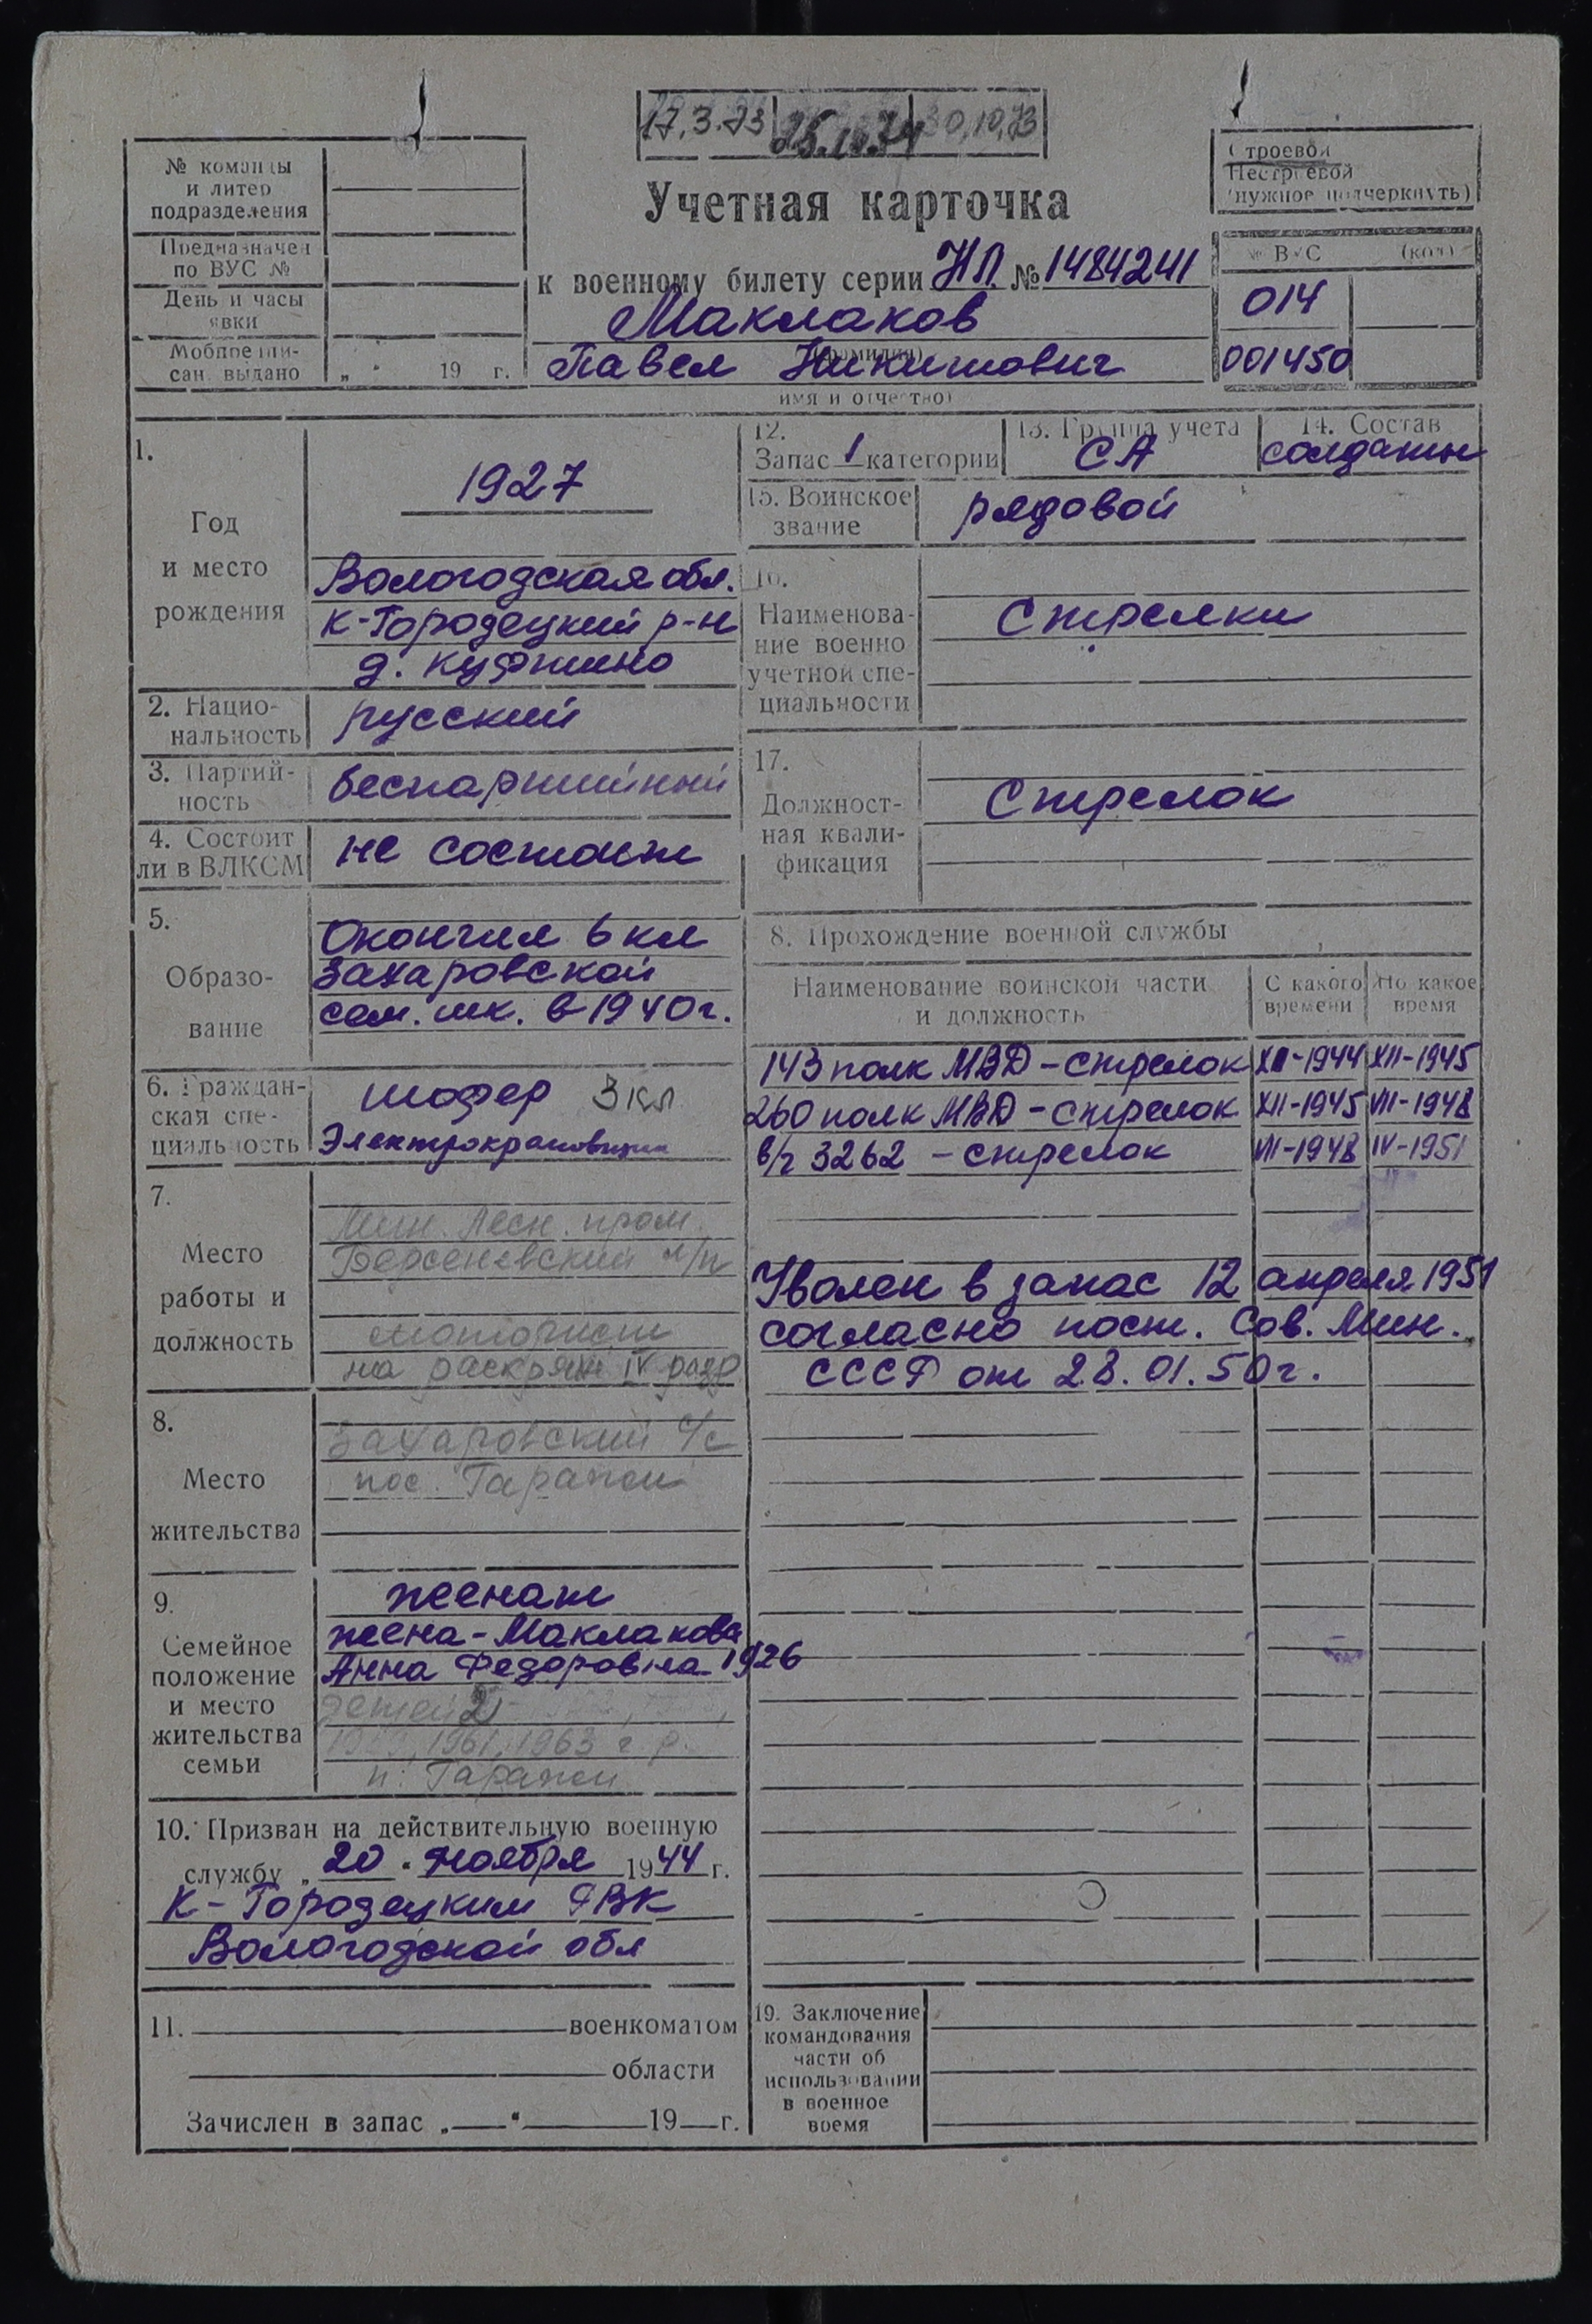 17.3.73 30.10.73
№ команды
и литер
подразделения
Предназначен
по ВУС №
День и часы
явки
Мобпредпи-
сан. выдано „ “ 19 г.
Учетная карточка
к военному билету серии НЛ № 1484241
Маклаков
(фамилия)
Павел Никитович
имя и отчество)
Строевой
Нестроевой
(нужное подчеркнуть)
№ ВУС (код)
014
001450
1.
Год
и место
рождения
1927
Вологодская обл.
К-Городецкий р-н
2. Нацио-
нальность
русский
3. Партий-
ность
беспартийный
4. Состоит
ли в ВЛКСМ
не состоит
5.
Образо-
вание
Окончил 6 кл
Захаровской
сем. шк. в 1940 г.
6. Граждан-
ская спе-
циальность
шофер 3 кл
Электрокрановщик
7.
Место
работы и
должность
Мин. Лесн. пром.
моторист
на раскряж IV разр
8.
Место
жительства
Захаровский с/с
9.
Семейное
положение
и место
жительства
семьи
женат
жена - Маклакова
Анна Федоровна 1926
детей 2
1961, 1963 г.р.
10. Призван на действительную военную
службу „ 20 “ Ноября 1944 г.
К-Городецким РВК
Вологодской обл
11. военкоматом
области
Зачислен в запас „ “ 19 г.
12.
Запас 1 категории
13. Группа учета
СА
14. Состав
солдаты
15. Воинское
звание
рядовой
16.
Наименова-
ние военно
учетной спе-
циальности
Стрелки
17.
Должност-
ная квали-
фикация
Стрелок
8. Прохождение военной службы
Наименование воинской части
и должность
С какого
времени
По какое
время
143 полк МВД - стрелок XII-1944 XII-1945
260 полк МВД - стрелок XII-1945 VIII-1948
в/ч 3262 - стрелок VIII-1948 IV-1951
Уволен в запас 12 апреля 1951
согласно пост. Сов. Мин.
СССР от 28.01.50 г.
19. Заключение
командования
части об
использовании
в военное
время